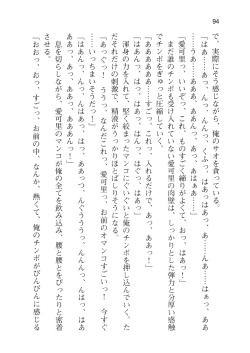 94
で、実際にそう感じながら、俺のサオを貪っている。
「はぁ……あっ、んっ、んっ、くふっ、はぁっ、あっ……んあっ……はぁっ、ああ
っ……あっ……ああっ!」
「愛可里っ、いいぞっ、これ、ものすごく締りがよくて、おっ、おっ!」
まだ誰のチンポも受け入れていない愛可里の肉壁は、しっかりとした弾力と分厚い感触
でチンポをぎゅっと圧縮していく。
「あああああ……すごっ、これっ、入れるだけで、あっ、あああっ!」
「はぁはぁはぁっ……あっ、ああっ……はぁ、ああ……ああ!」
渾身の力を入れて、堅く絞まるマンコに俺のチンポを押し込んでいく。た
だそれだけの刺激で、精液がうっかりほとばしりそうになる。
「あっぐっ! ううっ、なんだこれっ、愛可里っ、お前のオマンコすごいっ! 今すぐ
……いっちまいそうだっ!」
「はぁはぁはぁっ、あっ、あぁっ、はぁっ、はぁっ、
あぁっ、あっ、んあっ、はぁっつっ、んくううっ、んんんっ、んっ、はぁっ」
息を切らしながら、愛可里のマンコが俺の全てを飲み込み、腰と腰をぴったりと密着
させる。
「おおっ、おっ、すごっ、お前の中、なんか、熱くて、俺のチンポがびんびんに感じる